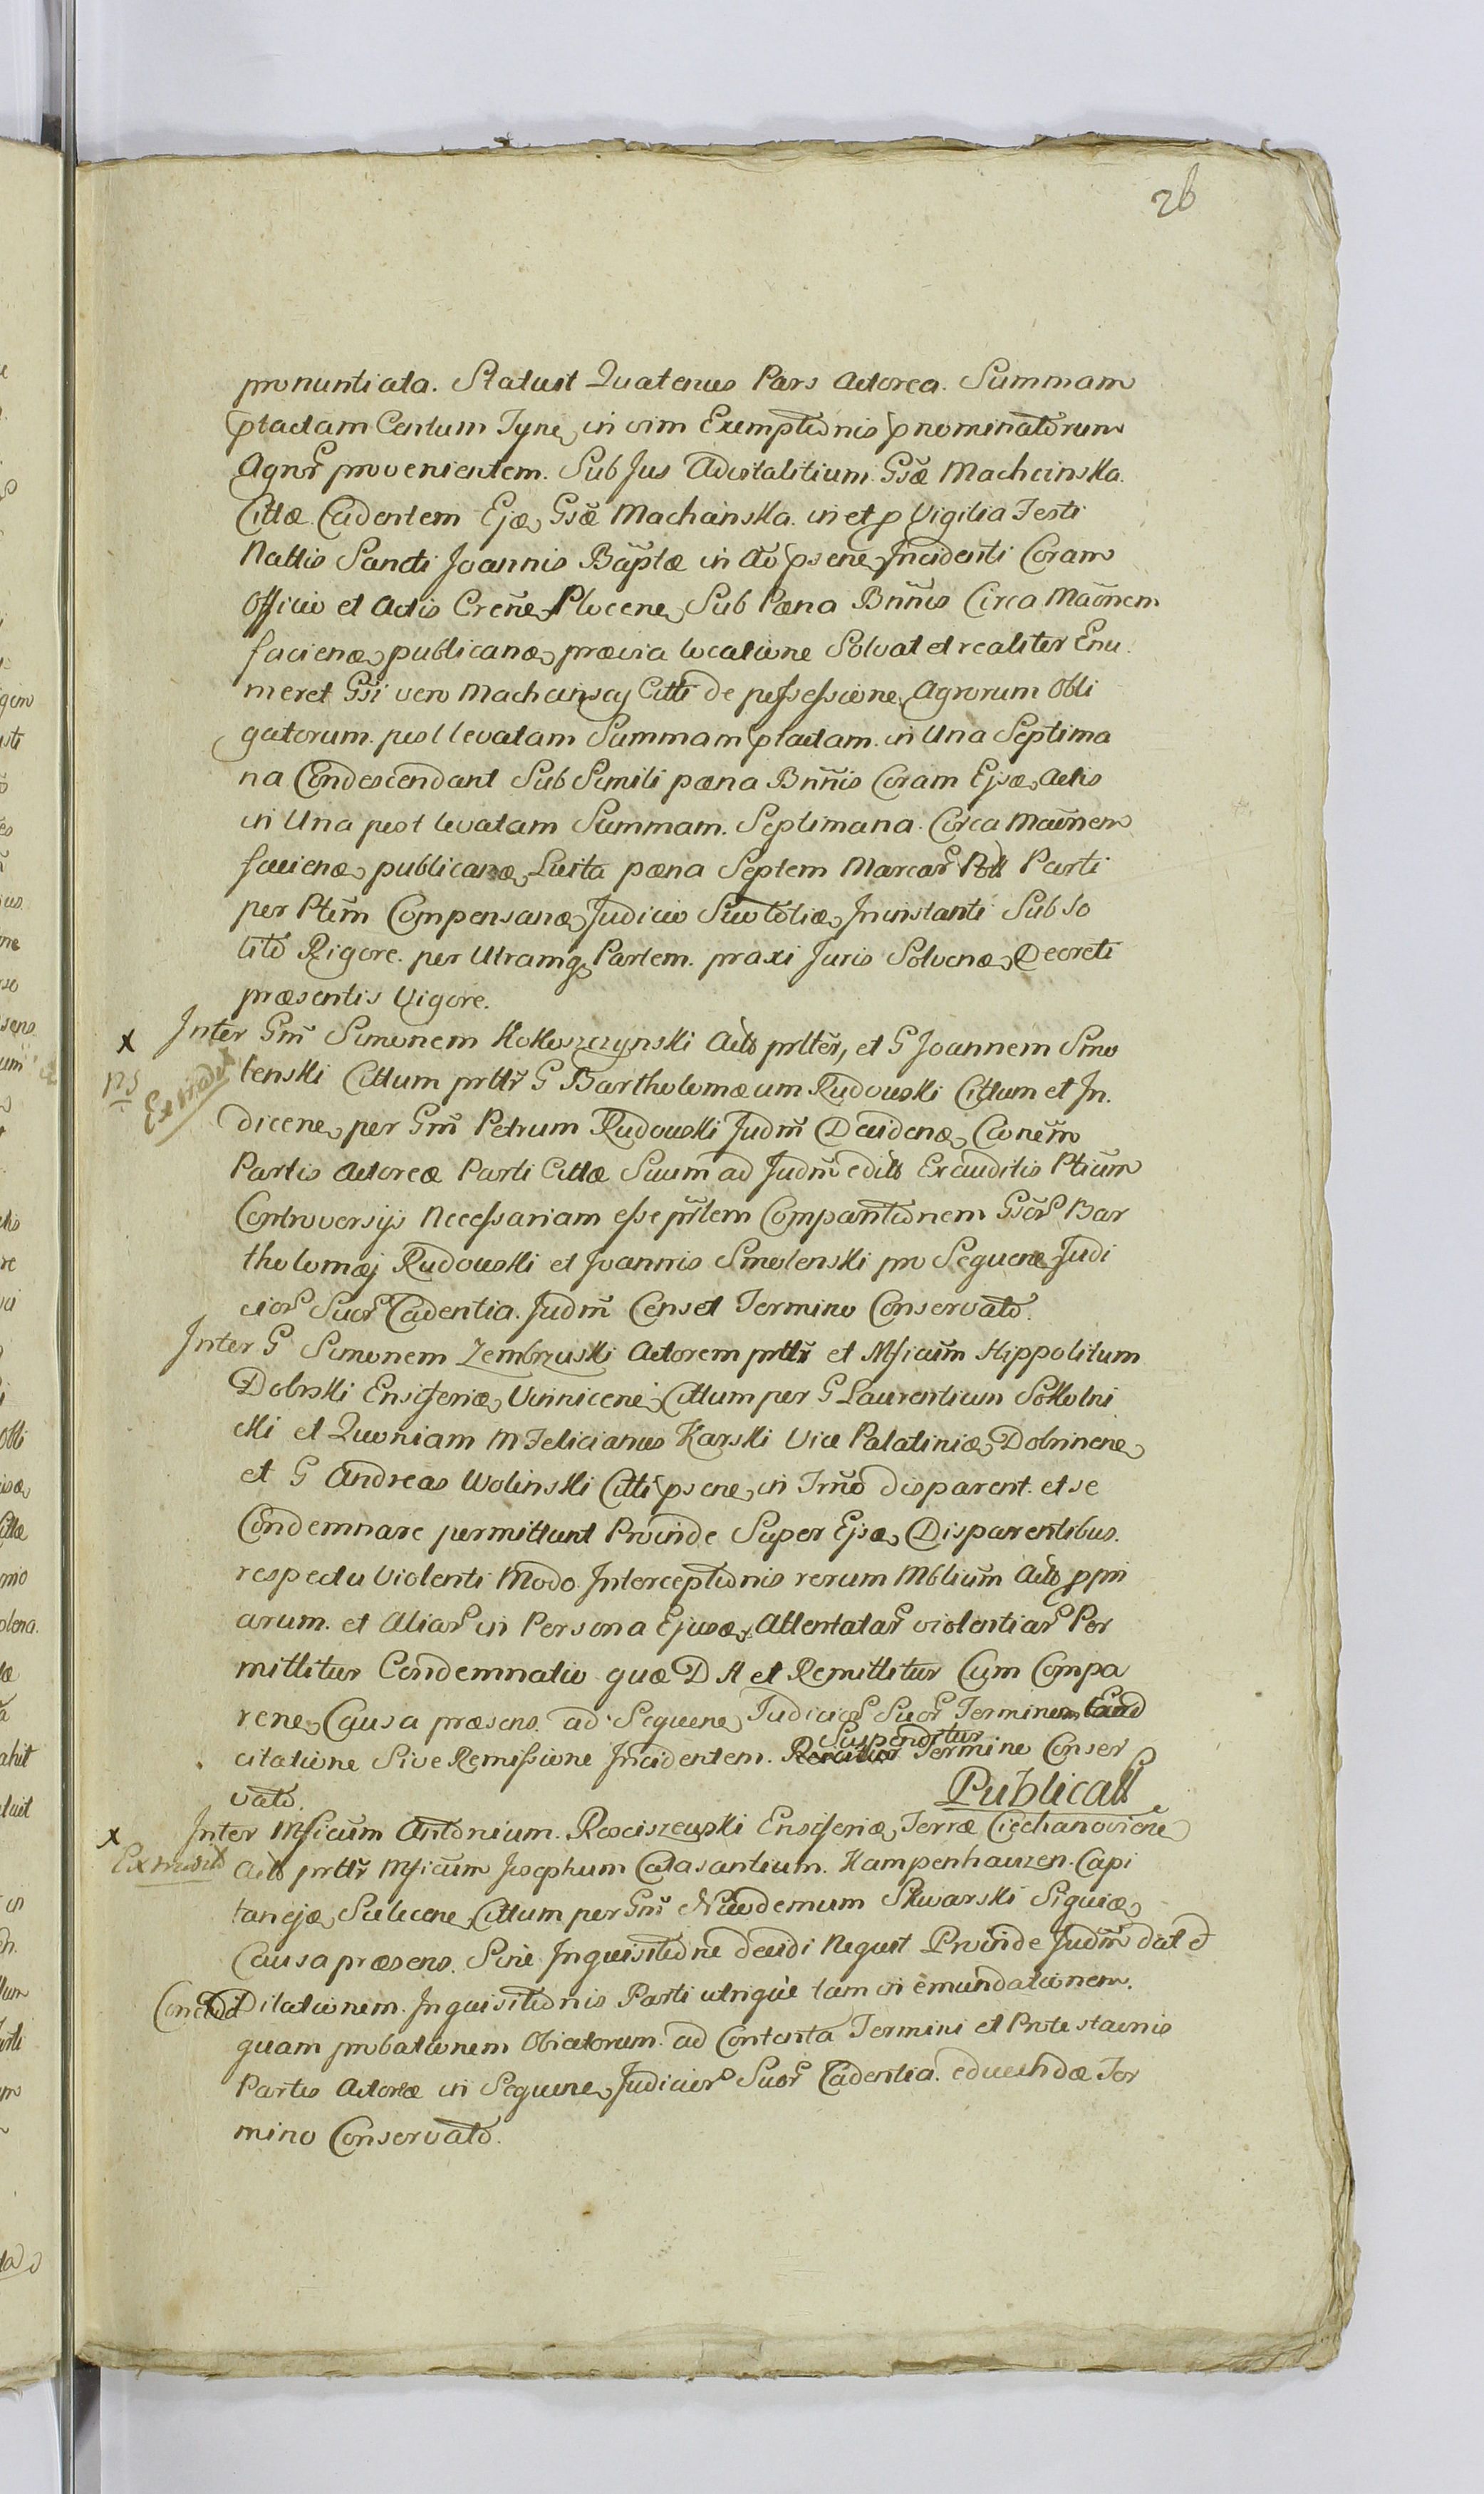 26
pronuntiata. Statuit Quatenus Pars Actorea. Summam
ptactam Centum Tyne, in vim Exemptionis pnominatorum
Agror provenientem. Sub Jus Advitalitium Gsæ Machcinska.
Cittæ Cadentem Ejæ, Gsæ Machcinska. in et p Vigilia Festi
Nattis Sancti Joannis Baptæ in Ao psene, Incidenti Coram
Officio et Actis Crene, Plocene, Sub Pæna Bnnis Circa Maonem
facienæ, publicanæ, prævia locatione Solvat et realiter Enu
meret Gsi vero Machcinscy Citti de possessione Agrorum Obli
gatorum. post levatam Summam ptactam. in Una Septima
na Condescendant Sub Simili pæna Bnnis Coram Ejsæ, Actis
in Una post levatam Summam. Septimana. Circa Maonem
facienæ, publicanæ, Luita pæna Septem Marcar Parti
per Ptem Compensanæ, Judicio Suo totiæ, Ininstanti Sub So
lito Rigore. per Utramq Partem. praxi Juris Solvenæ, Decreti
præsentis Vigore.
x Inter Gm Simonem Kokoszczynski Acto prlter, et G Joannem Smo
NS Extradit lenski Cittum prltr G Bartholomæum Rudowski Cittum et In.
dicene, per Gm Petrum Rudowski Judm Deidenæ, Conem
Partis Actoreæ Parti Cittæ Suum ad Judm edito Exauditis Ptium
Controversijs Necessariam esse prltem Comparitionem Gsor Bar
tholomæj Rudowski et Joannis Smolenski pro Sequene, Judi
cior Suor Cadentia. Judm Censet Termino Conservato.
Inter G Simonem Zembrzuski Actorem prltr et Mficum Hippolitum
Dobrski Ensiferiæ, Vinnicene, Cittum per G Laurentium Sokolni
cki et Quoniam M Felicianus Karski Vice Palatiniæ, Dobrinene,
et G Andreas Wolinski Citti psene, in Trmo disparent. et se
Condemnare permittunt Proinde Super Ejsæ, Disparentibus.
respectu Violenti Modo Interceptionis rerum Mblium Acto ppri
arum. et Aliar in Persona Ejusæ, Attentatar violentiar Per
mittitur Condemnatio quæ D A et Remittitur Cum Compa
rene, Causa præsens. ad Sequene, Judicior Suor Terminum
citatione Sive Remissione Incidentem. Suspenditur Termino Conser
vato. Publicatt
x Inter Mficum Antonium. Rosciszewski Ensiferiæ, Terræ Ciechanoviene
Extradit Acto prltr Mficum Josephum Calasantium. Kampenhauzen. Capi
tanejæ, Sulecene, Cittum per Gm Nicodemum Skwarski Siquiæ,
Causa præsens. Sine Inquisitione decidi Nequit Proinde Judm dat et
Concedit Dilationem. Inquisitionis Parti utrique tam in emundationem.
quam probationem Obiectorum. ad Contenta Termini et Protestaonis
Partis Actoræ in Sequene, Judicior Suor Cadentia. educendæ Ter
mino Conservato.